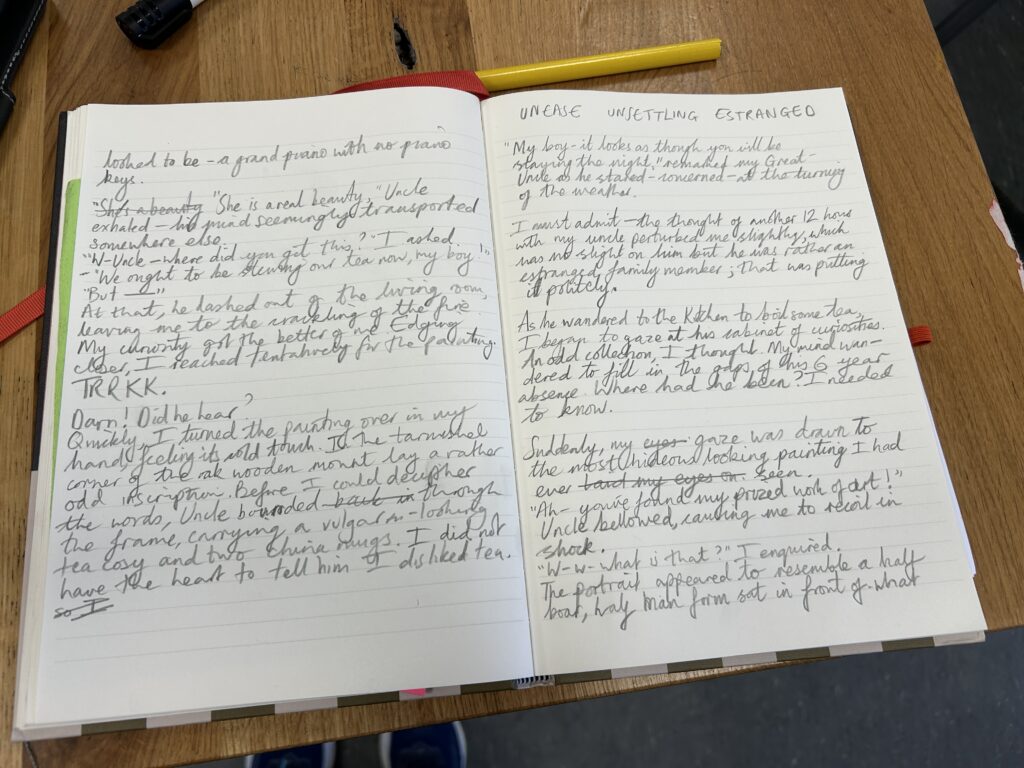 looked to be – a grand piano with no piano
keys.
"She's a beauty "She is a real beauty," Uncle
exhaled – his mind seemingly transported
somewhere else.
"W-Uncle – where did you get this?" I asked.
– "We ought to be stewing our tea now, my boy!"
"But —"
At that, he dashed out of the living room,
leaving me to the crackling of the fire.
My curiosity got the better of me. Edging
closer, I reached tentatively for the painting.
TRRKK.
Darn! Did he hear?
Quickly, I turned the painting over in my
hand, feeling its cold touch. In the tarnished
corner of the oak wooden mount lay a rather
odd inscription. Before I could decipher
the words, Uncle bounded back in through
the frame, carrying a vulgar-looking
tea cosy and two china mugs. I did not
have the heart to tell him I disliked tea.
so I
UNEASE UNSETTLING ESTRANGED
"My boy – it looks as though you will be
staying the night," remarked my Great-
Uncle as he stared – concerned – at the turning
of the weather.
I must admit – the thought of another 12 hours
with my uncle perturbed me slightly, which
was no slight on him but he was rather an
estranged family member; that was putting
it politely.
As he wandered to the kitchen to boil some tea,
I began to gaze at his cabinet of curiosities.
An odd collection, I thought. My mind wan-
dered to fill in the gaps of his 6 year
absence. Where had he been? I needed
to know.
Suddenly, my eyes gaze was drawn to
the most hideous looking painting I had
ever laid my eyes on. seen.
"Ah – you've found my prized work of art!"
Uncle bellowed, causing me to recoil in
shock.
"W-w-what is that?" I enquired.
The portrait appeared to resemble a half
boar, half man form sat in front of what